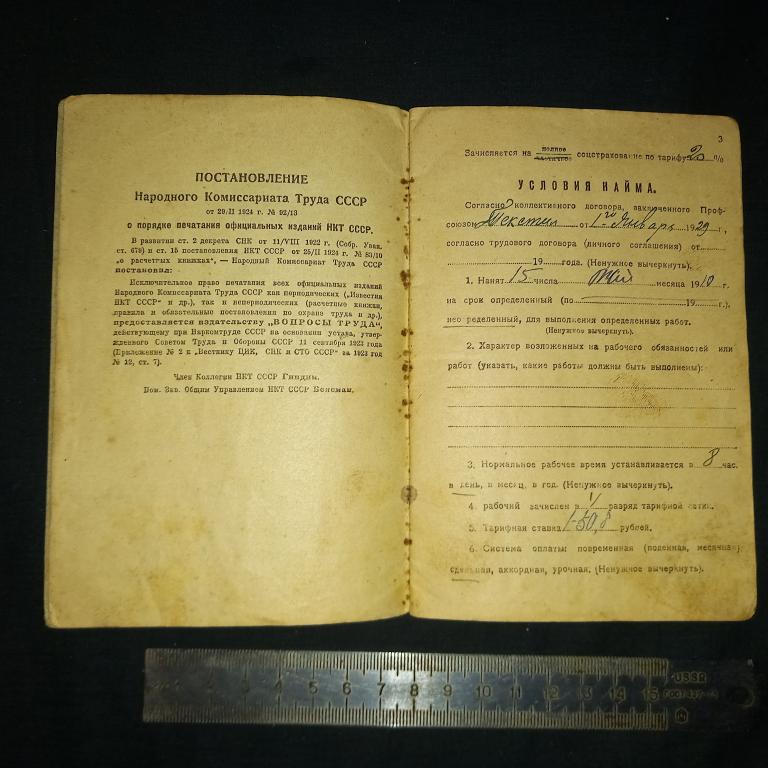 ПОСТАНОВЛЕНИЕ
Народного Комиссариата Труда СССР
от 29/II 1924 г. № 92/13
о порядке печатания официальных изданий НКТ СССР.
В развитии ст. 2 декрета СНК от 11/VIII 1922 г. (Собр. Узак.
ст. 679) и ст. 15 постановления НКТ СССР от 25/II 1924 г. № 83/10
„о расчетных книжках", — Народный Комиссариат Труда СССР
постановил:
Исключительное право печатания всех официальных изданий
Народного Комиссариата Труда СССР как периодических („Известия
НКТ СССР" и др.), так и непериодических (расчетные книжки,
правила и обязательные постановления по охране труда и др.),
предоставляется издательству „ВОПРОСЫ ТРУДА",
действующему при Наркомтруде СССР на основании устава, утвер-
жденного Советом Труда и Обороны СССР 11 сентября 1923 года
(Приложение № 2 к „Вестнику ЦИК, СНК и СТО СССР" за 1923 год
№ 12, ст. 7).
Член Коллегии НКТ СССР Гиндин.
Пом. Зав. Общим Управлением НКТ СССР
3
Зачисляется на полное частичное соцстрахование по тарифу %
УСЛОВИЯ НАЙМА.
Согласно коллективного договора, заключенного Проф-
союзом Текстил от 1го Января 1929 г,
согласно трудового договора (личного соглашения) от
19 года. (Ненужное вычеркнуть).
1. Нанят 15 числа Май месяца 19 г.
на срок определенный (по 19 г.),
нео ределенный, для выполнения определенных работ.
(Ненужное вычеркнуть).
2. Характер возложенных на рабочего обязанностей или
работ (указать, какие работы должны быть выполнены):
3. Нормальное рабочее время устанавливается в 8 час.
в день, в месяц, в год. (Ненужное вычеркнуть).
4. рабочий зачислен в разряд тарифной сетки.
5. Тарифная ставка рублей.
6. Система оплаты повременная (поденная, месячная)
сдельная, аккордная, урочная. (Ненужное вычеркнуть).
2 3 4 5 6 7 8 9 10 11 12 13 14 15
USSR